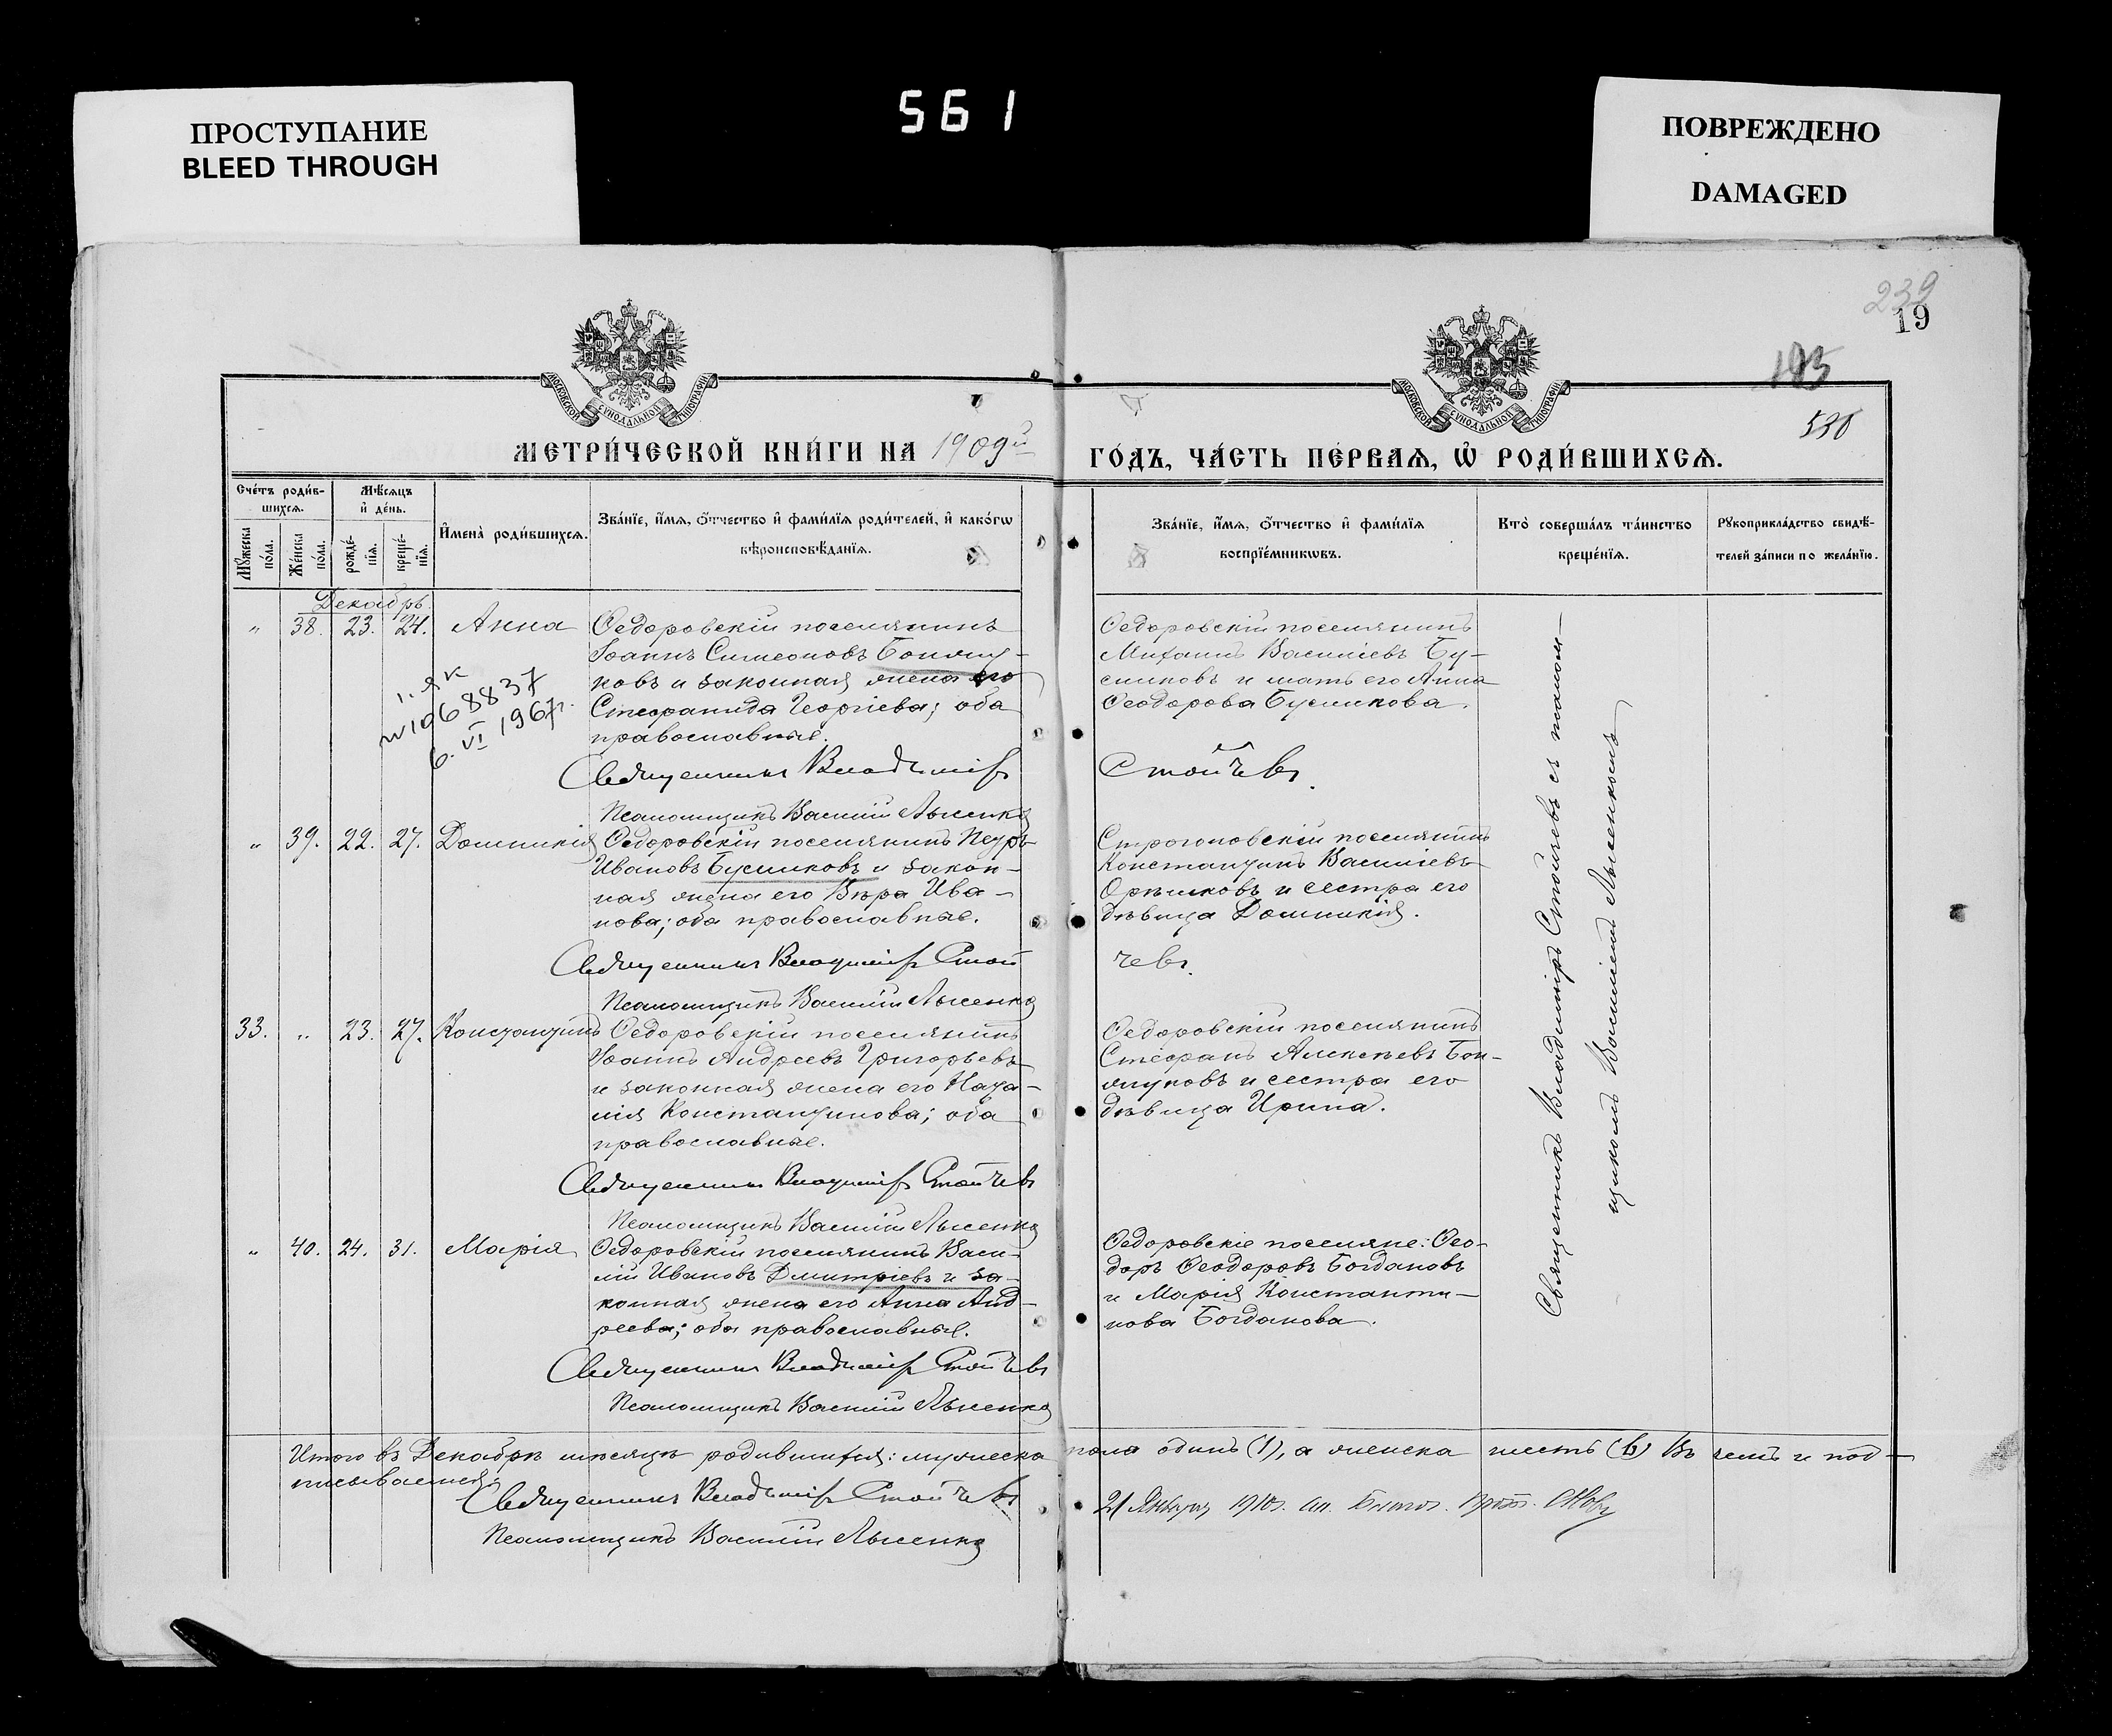 ПРОСТУПАНИЕ
BLEED THROUGH
561
ПОВРЕЖДЕНО
DAMAGED
239
19
195
530
МЕТРИ́ЧЕСКОЙ КНИ́ГИ НА 1909й
ГО́ДЪ, ЧА́СТЬ ПЕ́РВАѦ, Ѡ҆ РОДИ́ВШИХСѦ.
Сче́тъ роди́в-
шихсѧ.
Мѣ́сѧцъ
и҆ де́нь.
Мꙋ́жеска по́ла.
Же́нска по́ла.
рожде́-
нїѧ.
креще́-
нїѧ.
И҆мена̀ роди́вшихсѧ.
Зва́нїе, и҆́мѧ, ѻ҆́тчество и҆ фами́лїѧ роди́телей, и҆ како́гѡ
вѣроисповѣ́данїѧ.
Зва́нїе, и҆́мѧ, ѻ҆́тчество и҆ фами́лїѧ
воспрїе́мникѡвъ.
Кто̀ соверша́лъ та́инство
креще́нїѧ.
Рꙋкоприкла́дство свидѣ́-
телей за́писи по жела́нїю.
Декабрь.
„ 38. 23. 24. Анна
Ѳедоровскій поселянинъ
Іоаннъ Симеоновъ Бонжу-
ковъ и законная жена его
Стефанида Георгіева; оба
православные.
Священникъ Владиміръ
Псаломщикъ Василій Лысенко
Ѳедоровскій поселянинъ
Михаилъ Васильевъ Бу-
сликовъ и мать его Анна
Ѳеодорова Бусликова.
Стойчевъ.
1068837
6. VI 1967г.
„ 39. 22. 27. Домникія
Ѳедоровскій поселянинъ Петръ
Ивановъ Бусликовъ и закон-
ная жена его Вѣра Ива-
нова; оба православные.
Священникъ Владиміръ Стой
Псаломщикъ Василій Лысенко
Строгоновскій поселянинъ
Константинъ Васильевъ
Орѣшковъ и сестра его
дѣвица Домникія.
чевъ.
33. „ 23. 27. Константинъ
Ѳедоровскій поселянинъ
Іоаннъ Андреевъ Григорьевъ
и законная жена его Ната-
лія Константинова; оба
православные.
Священникъ Владиміръ Стойчевъ
Псаломщикъ Василій Лысенко
Ѳедоровскій поселянинъ
Стефанъ Алексѣевъ Бон-
жуковъ и сестра его
дѣвица Ирина.
„ 40. 24. 31. Марія
Ѳедоровскій поселянинъ Васи-
лій Ивановъ Дмитріевъ и за-
конная жена его Анна Анд-
реева; оба православные.
Священникъ Владиміръ Стойчевъ
Псаломщикъ Василій Лысенко
Ѳедоровскіе поселяне: Ѳео-
доръ Ѳеодоровъ Богдановъ
и Марія Константи-
нова Богданова.
Священникъ Владиміръ Стойчевъ съ псалом-
щикомъ Василіемъ Лысенкомъ
Итого въ Декабрѣ мѣсяцѣ родившихся: мужеска пола одинъ (1), а женска шесть (6) Въ чемъ и под-
писываемся:
Священникъ Владиміръ Стойчевъ
Псаломщикъ Василій Лысенко
21 Января 1910г. Благоч. Прот.